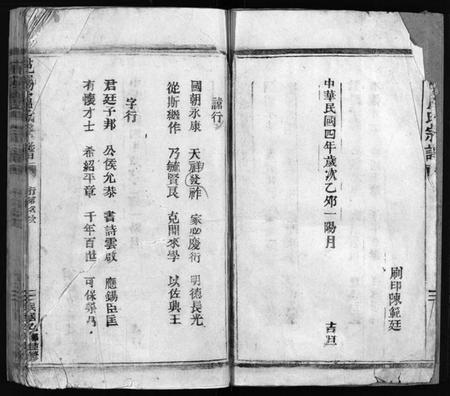 氏宗譜
刷印陳範廷
中華民國四年歲次乙卯一陽月
吉旦
諱行
國朝永康 天祥發祚 家必慶衍 明德長光
從斯繼作 乃毓賢良 克開來學 以佐興王
字行
君廷子邦 公侯允恭 書詩雲啟 應錫臣匡
有懷才士 希紹平章 千年百世 可保榮昌
行第名次